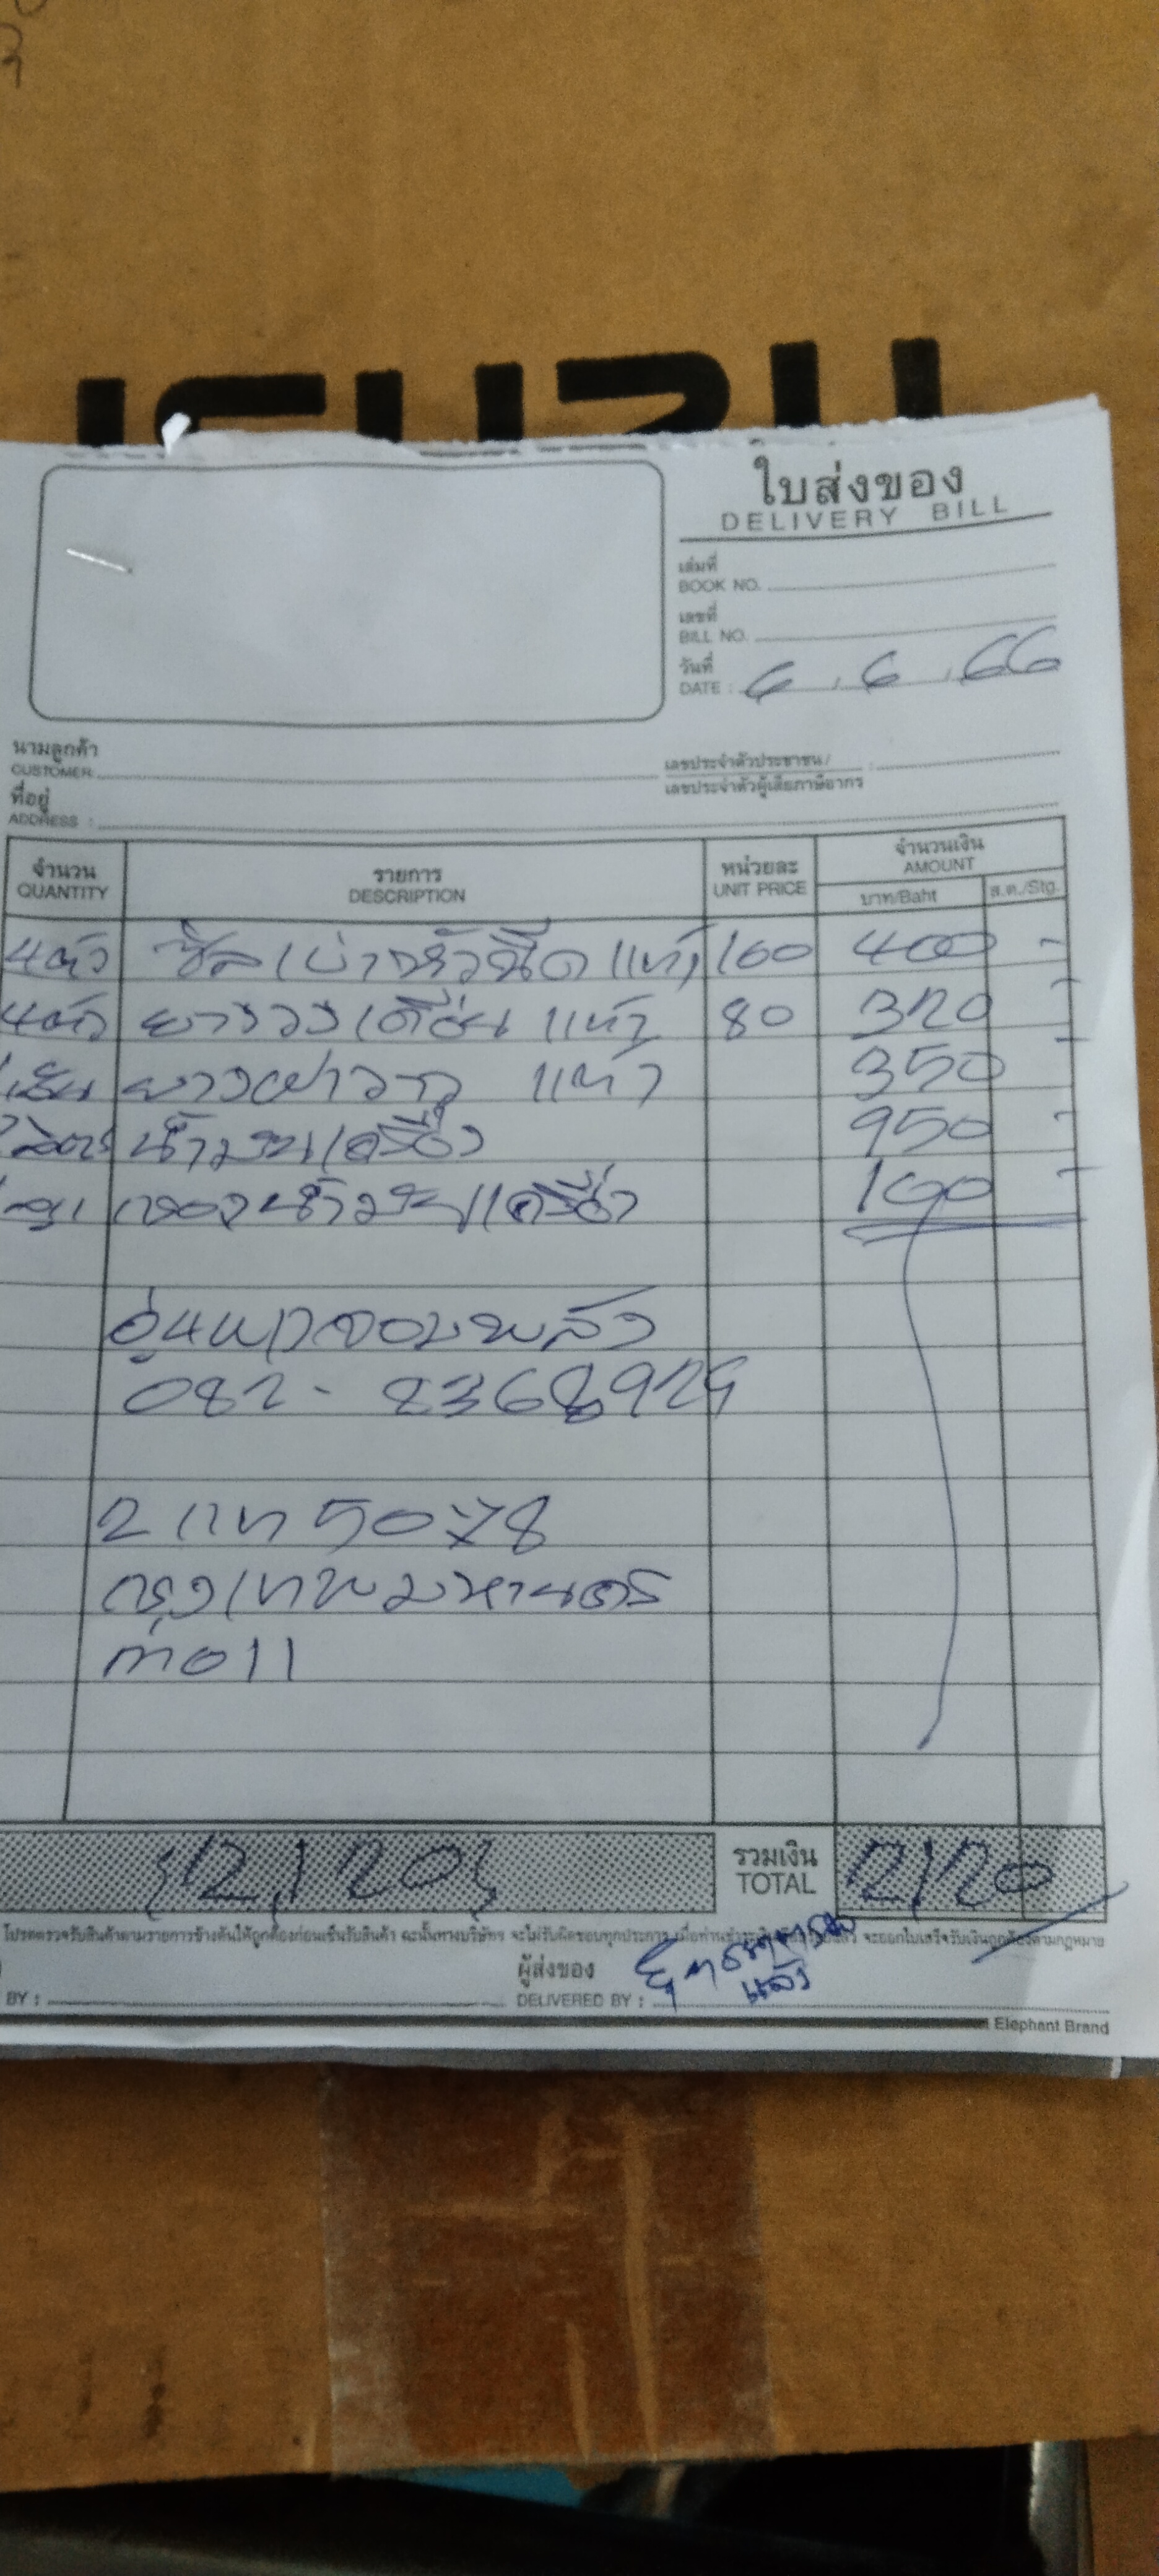 ISUZU
ใบส่งของ
DELIVERY BILL
เล่มที่
BOOK NO.
เลขที่
BILL NO.
วันที่
DATE : 6 / 6 / 66
นามลูกค้า
CUSTOMER:
เลขประจำตัวประชาชน /
เลขประจำตัวผู้เสียภาษีอากร :
ที่อยู่
ADDRESS :
จำนวน รายการ หน่วยละ จำนวนเงิน
QUANTITY DESCRIPTION UNIT PRICE AMOUNT
บาท/Baht ส.ต./Stg.
4ตัว ซีลเบ้าหัวฉีด แท้ 100 400 -
4ตัว ยางรอง แท้ 80 320 -
เส้น ยางฝาวาว แท้ 350 -
น้ำมันเครื่อง 950 -
ลูก กรองน้ำมันเครื่อง 100 -
อู่
082-8368929
2 แท 5078
กรุงเทพมหานคร
{2,120} รวมเงิน 2120
TOTAL
โปรดตรวจรับสินค้าตามรายการข้างต้นให้ถูกต้องก่อนเซ็นรับสินค้า ฉะนั้นทางบริษัทฯ จะไม่รับผิดชอบทุกประการ จะออกใบเสร็จรับเงินถูกต้องตามกฎหมาย
ผู้ส่งของ
BY : DELIVERED BY :
แล้ว
Elephant Brand